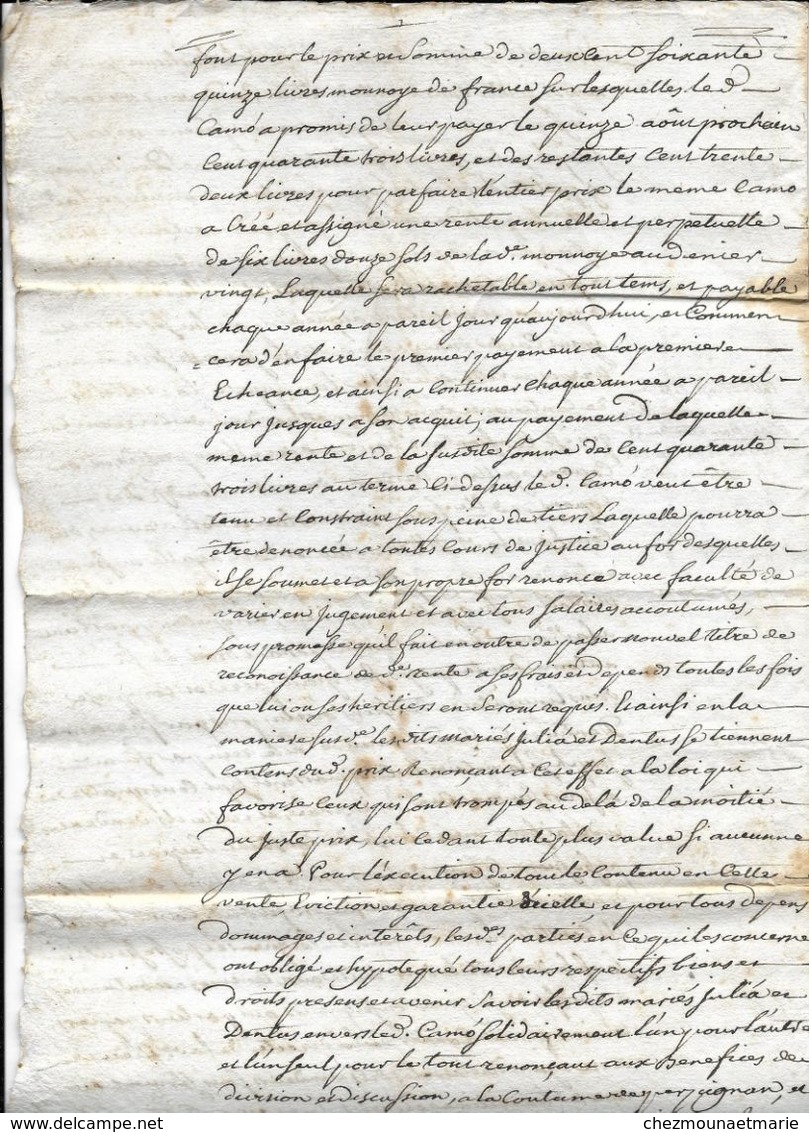 font pour le prix et Somme de deux Cent Soixante
quinze livres monnoye de france sur lesquelles le d.
Camó a promis de leur payer le quinze août prochain
Cent quarante trois livres, et des restantes Cent trente
deux livres pour parfaire l'entier prix le meme Camo
a Créé, et assigné une rente annuelle et perpetuelle
de six livres douze sols de lad.e monnoye au denier
vingt, Laquelle sera rachetable en tout tems, et payable
chaque année a pareil jour qu'aujourdhui, et Commen
=cera d'en faire le premier payement a la premiere
Echeance, et ainsi a Continuer chaque année a pareil
jour jusques a son acquit; au payement de laquelle
meme rente et de la susdite somme de Cent quarante
trois livres au terme Ci-dessus le d. Camó veut être
tenu et Constraint sous peine de tiers Laquelle pourra
être denoncée a toutes Cours de Justice au for desquelles
il se soumet et a son propre for renonce avec faculté de
varier en jugement et avec tous salaires accoutumés,
sous promesse qu'il fait en outre de passer nouvel titre de
reconoissance de d.e rente a ses frais et depends toutes les fois
que lui ou ses heritiers en seront requis. Et ainsi en la
maniere susd.e les dits mariés Juliá et Dentus se tiennent
Contens dud. prix Renonçant a Cet effet a la loi qui
favorise Ceux qui sont trompés au delá de la moitié
du juste prix, lui Cedant toute plus value si aucunne
y en a. Pour l'éxecution de tout le Contenu en Cette
vente, Eviction et garantie d'icelle, et pour tous depens
dommages et interêts, les d.es parties en Ce qui les concerne
ont obligé et hypotequé tous leurs respectifs biens et
droits presens et avenir Savoir les dits mariés Juliá et
Dentus envers le d. Camó solidairement l'un pour l'autre
et l'un seul pour le tout renonçant aux Benefices de
division et discussion, a la Coutume de perpignan, et
chezmounaetmarie